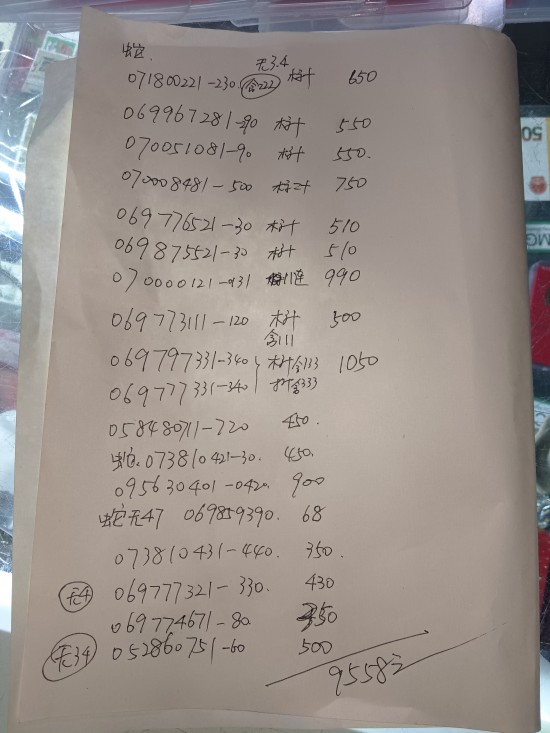 蛇. 无3.4
071800221-230 含222 标十 650
069967281-90 标十 550
070051081-90 标十 550.
070008481-500 标二十 750
069776521-30 标十 510
069875521-30 标十 510
070000121-131 连 990
069773111-120 标十 500
含111
069797331-340 标十含113 1050
069777331-340 标十含333
058480711-720 450.
蛇.073810421-30. 450.
095630401-0420. 900
蛇无47 069859390. 68
073810431-440. 350.
无4 069777321-330. 430
069774671-80 350
无34 052860751-60 500
9558元